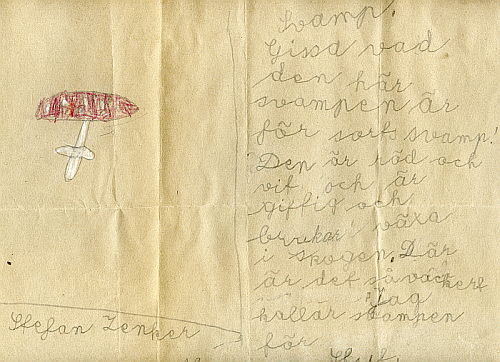 Svamp.
Gissa vad
den här
svampen är
för sorts svamp!
Den är röd och
vit och är
giftig och
brukar växa
i skogen. Där
är det så vackert
jag
kallar svampen
för
Stefan Zenker